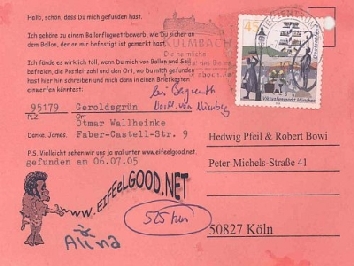 Hallo, schön, dass Du mich gefunden hast.
Ich gehöre zu einem Ballonflugwettbewerb, wie Du sicher an
dem Ballon, der an mir befestigt ist gemerkt hast.
Ich fände es wirklich toll, wenn Du mich von Ballon und Seil
befreien, die Postleitzahl und den Ort, wo Du mich gefunden
hast hier hin schreiben und mich dann in einen Briefkasten
einwerfen könntest:
95179 Geroldsgrün
PLZ Ort
Otmar Wallheinke
Danke, James. Faber-Castell-Str. 9
P.S. Vielleicht sehen wir uns ja mal unter www.eifeelgood.net.
gefunden am 06.07.05
bei Bayreuth
nördl. von Nürnberg
KULMBACH
45
Hedwig Pfeil & Robert Bowi
Peter Michels-Straße 41
50827 Köln
www.EIFEELGOOD.NET
525 km
Alina